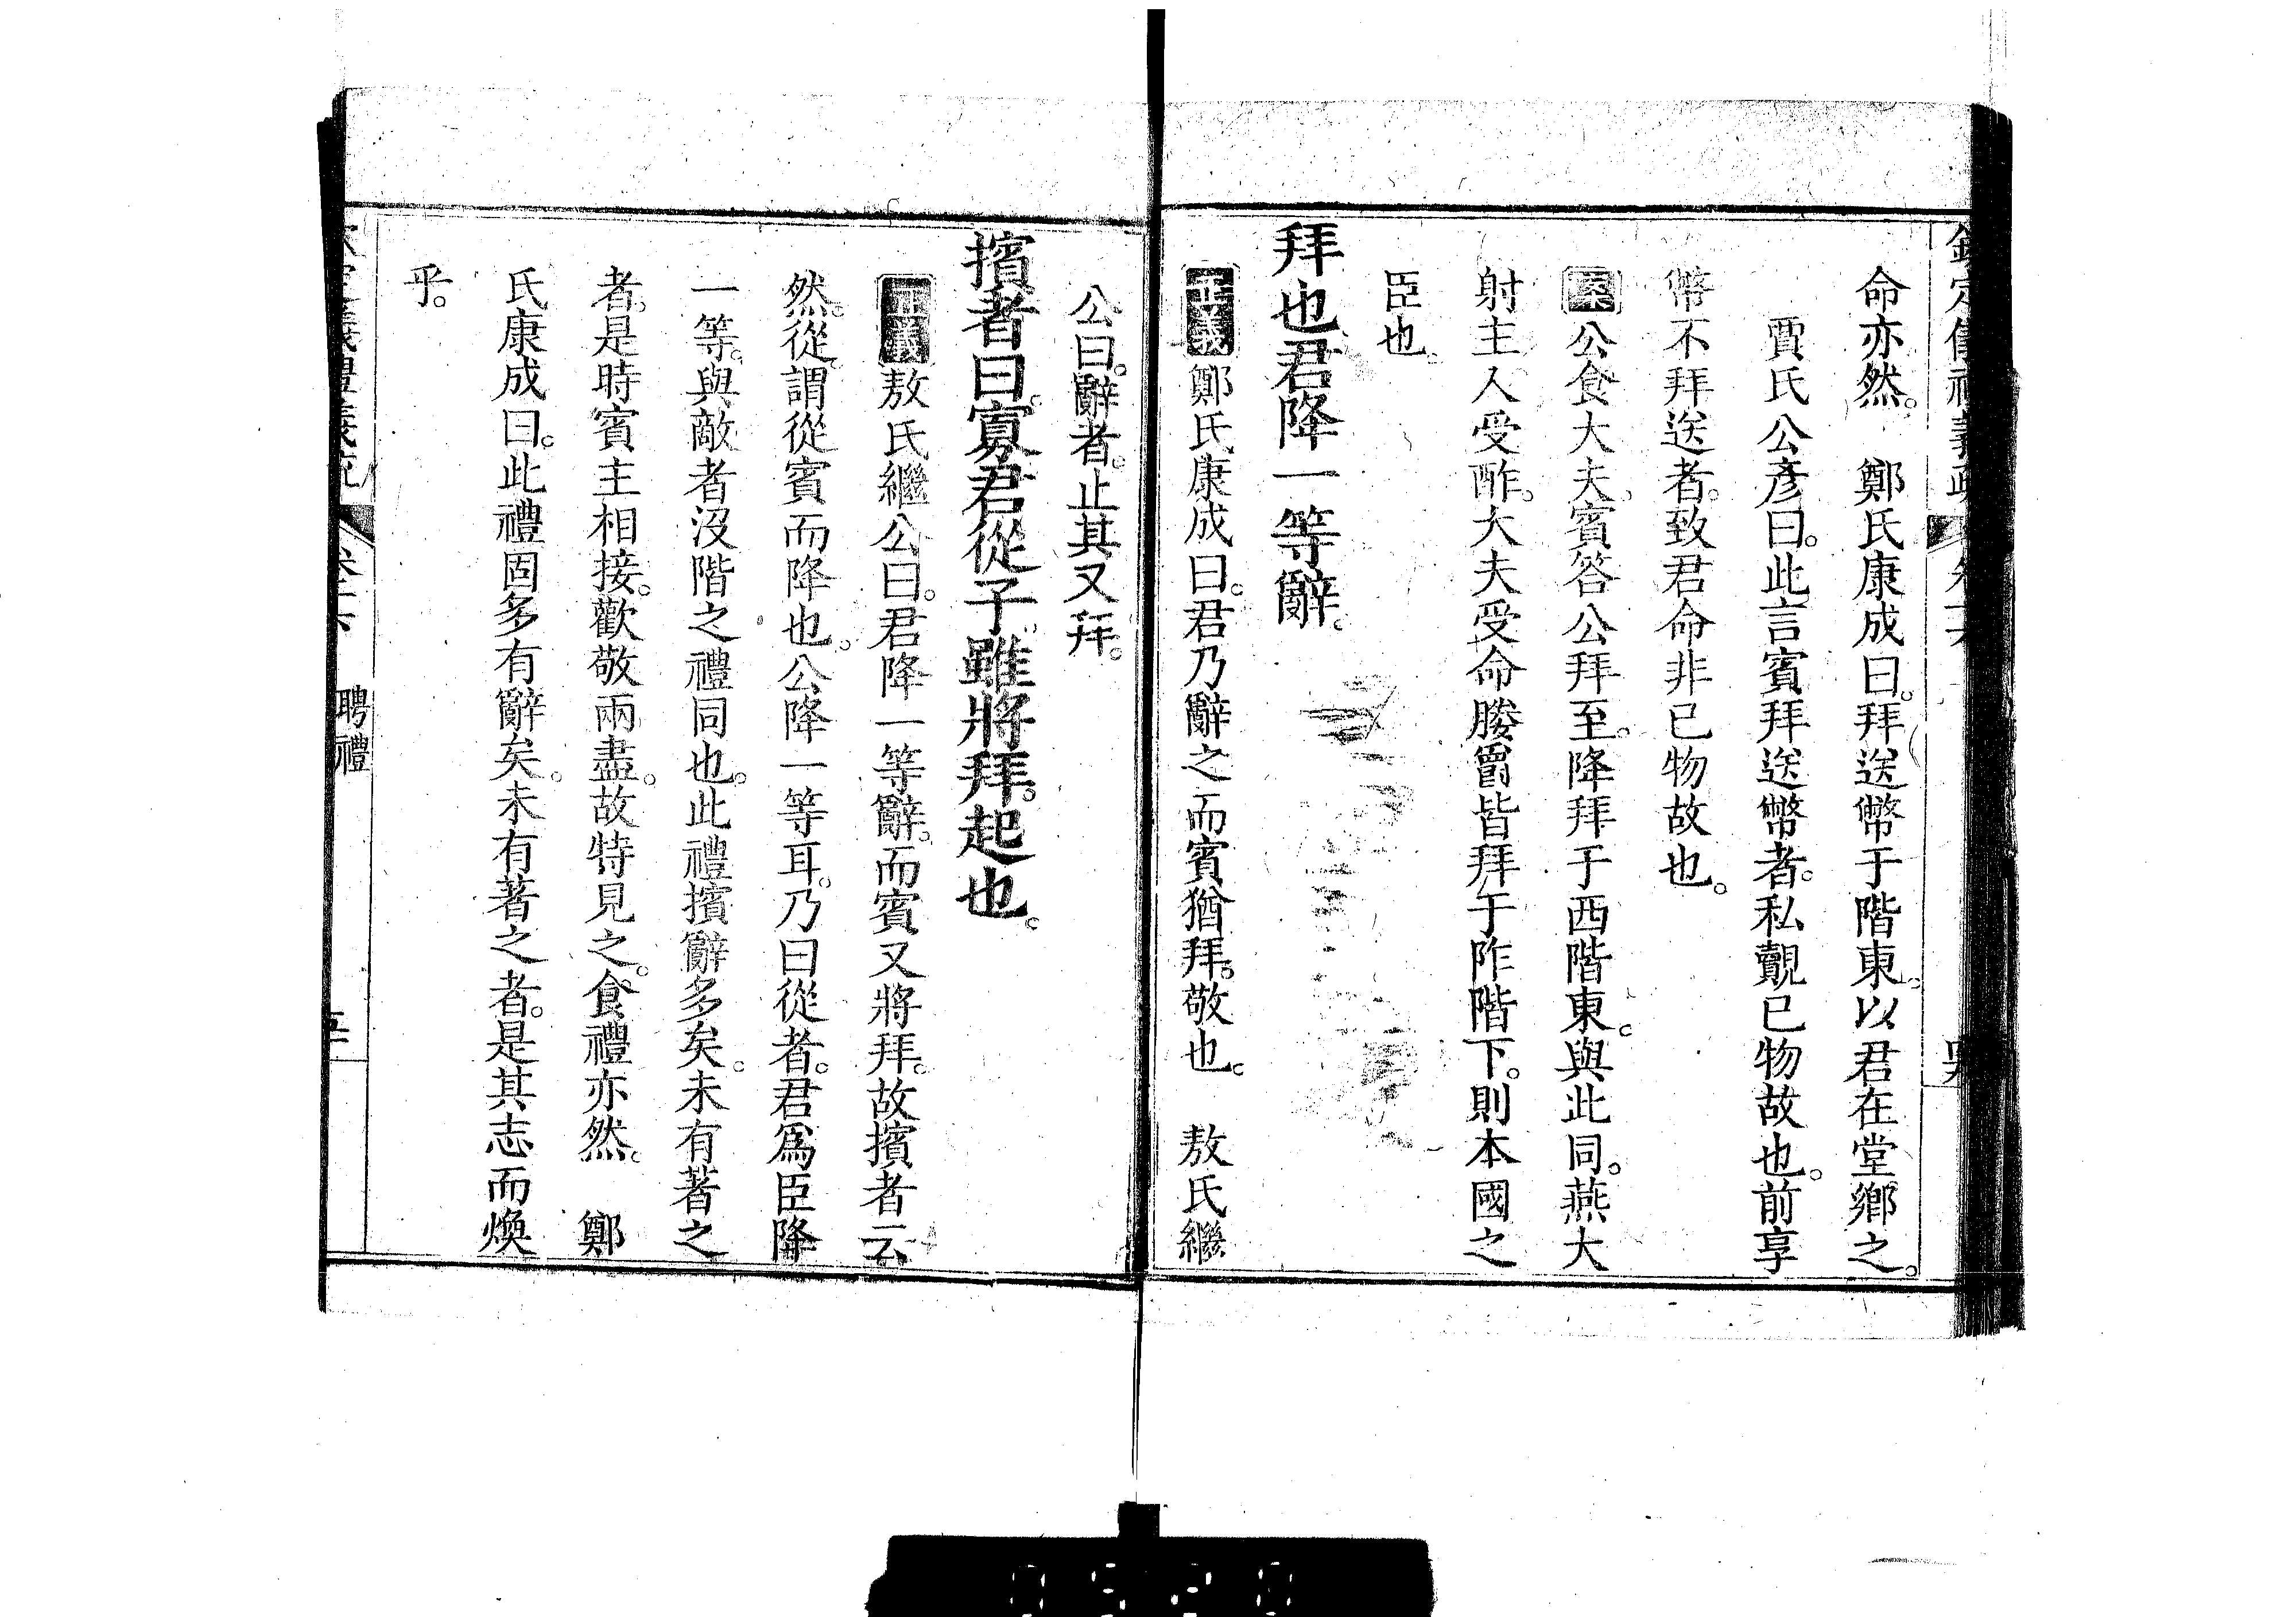 命亦然。　鄭氏康成曰。拜送幣于階東。以君在堂鄉之。
賈氏公彥曰。此言賓拜送幣者。私覿已物故也。前享
幣不拜送者。致君命非已物故也。
案公食大夫。賓答公拜至。降拜于西階東。與此同。燕大
射主人受酢。大夫受命媵爵皆拜于阼階下。則本國之
臣也。
拜也君降一等辭。
正義鄭氏康成曰。君乃辭之而賓猶拜。敬也。　敖氏繼
公曰。辭者。止其又拜。
擯者曰。寡君從子。雖將拜。起也。
正義敖氏繼公曰。君降一等辭。而賓又將拜。故擯者云
然。從。謂從賓而降也。公降一等耳。乃曰從者。君爲臣降
一等。與敵者沒階之禮同也。此禮擯辭多矣。未有著之
者。是時賓主相接。歡敬兩盡。故特見之。食禮亦然。　鄭
氏康成曰。此禮固多有辭矣。未有著之者。是其志而煥
乎。
聘禮